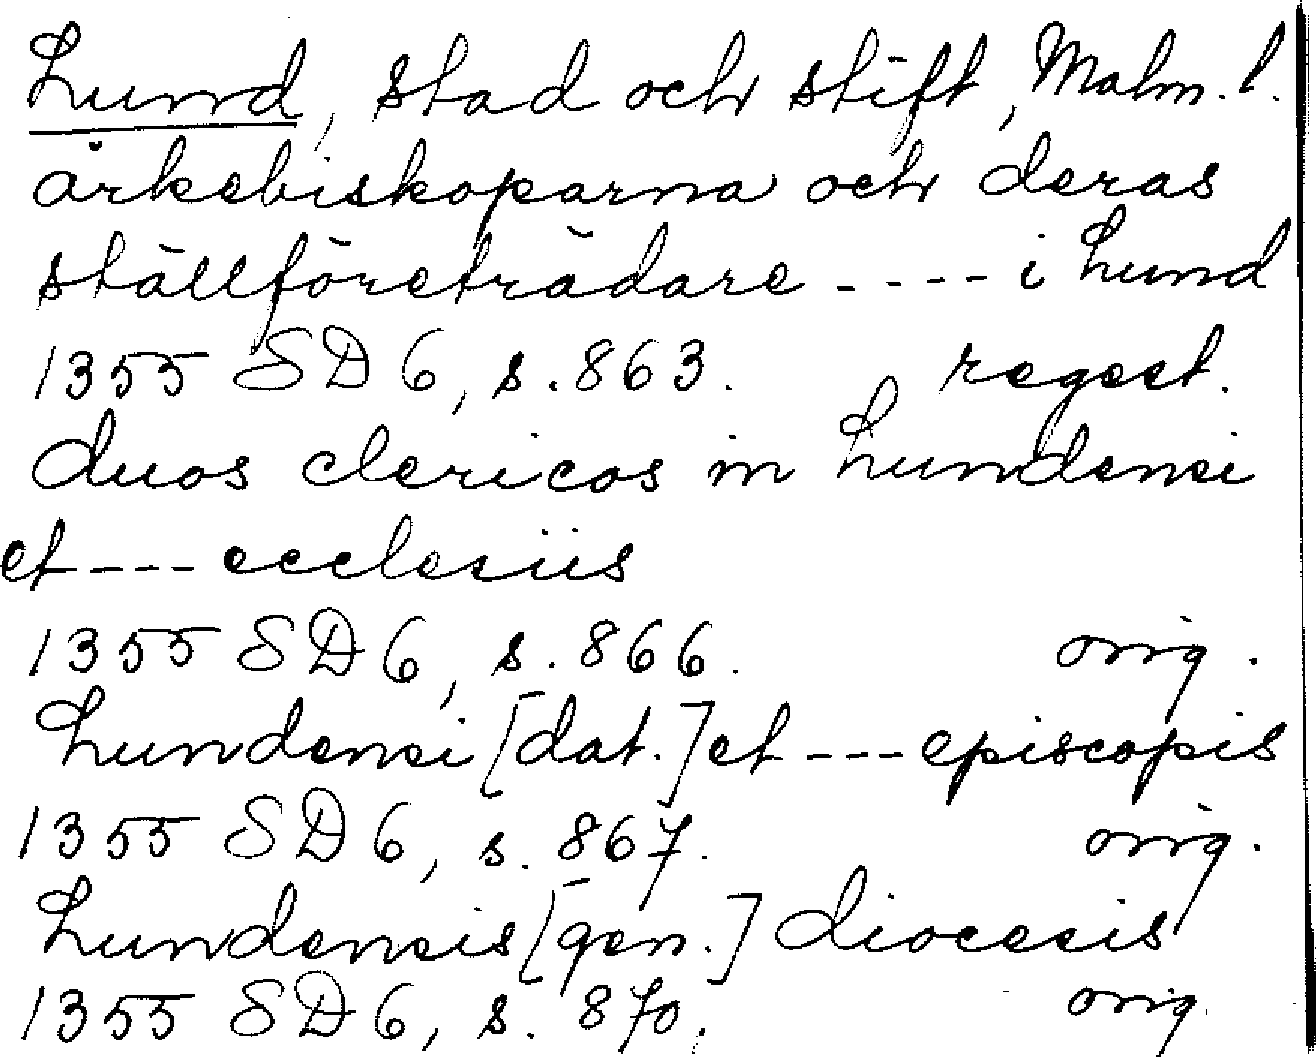 Lund, stad och stift, Malm. l.
ärkebiskoparna och deras
ställföreträdare - - - - i Lund
1355 SD 6, s. 863. regest.
duos clericos in Lundensi
et - - - ecclesiis
1355 SD 6, s. 866. orig.
Lundensi [dat.] et - - - episcopis
1355 SD 6, s. 867. orig.
Lundensis [gen.] diocesis
1355 SD 6, s. 870. orig.